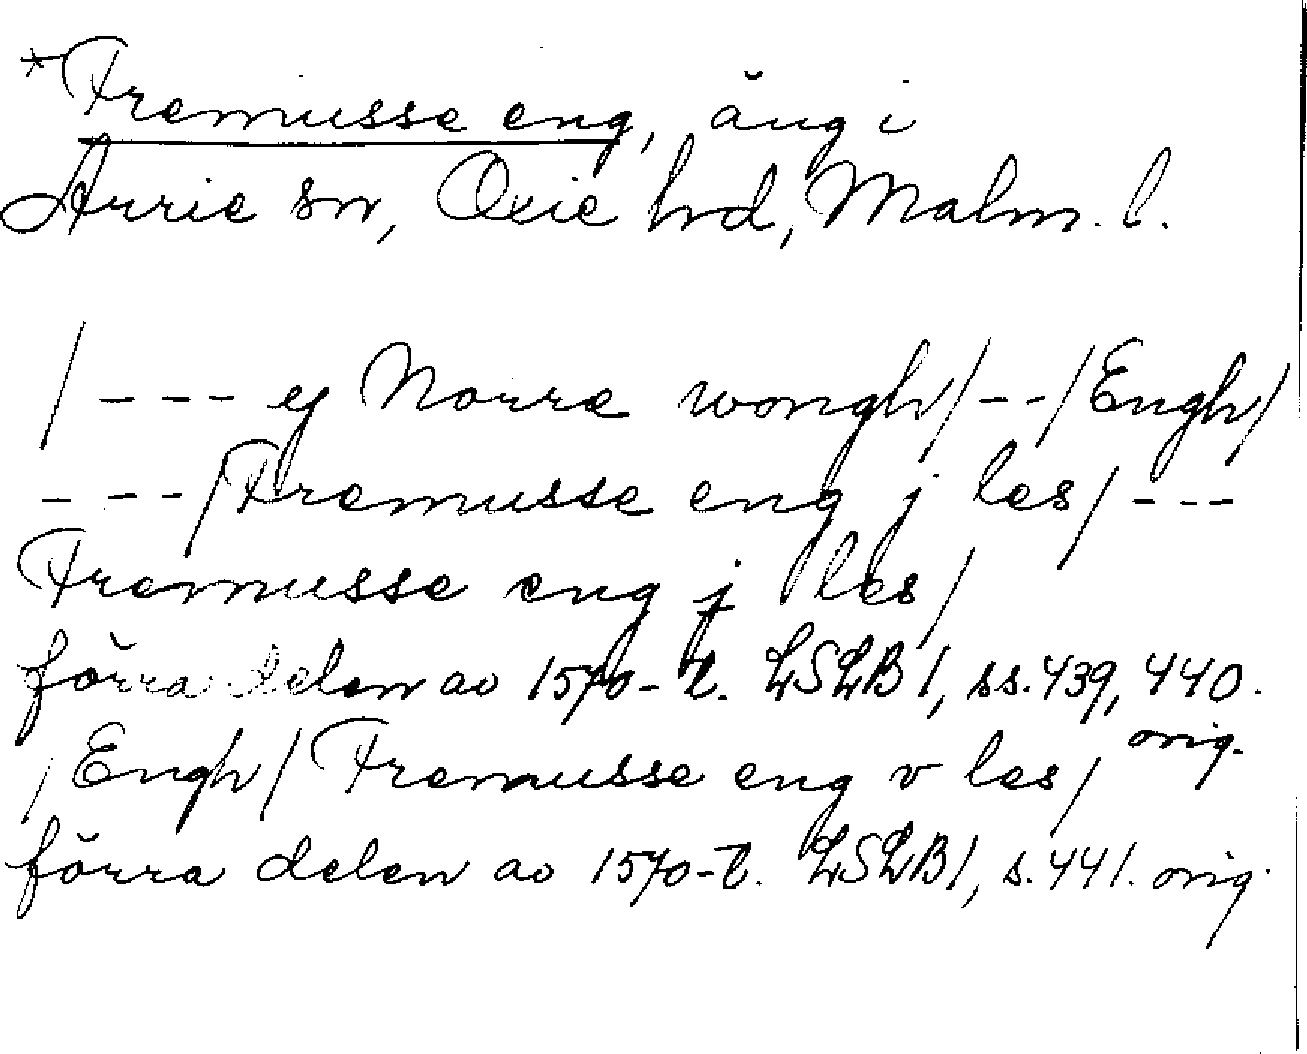 *Fremusse eng, äng i
Arrie sn, Oxie hd, Malm. l.
/ --- ej Norre wongh/ -- /Engh/
--- /Fremusse eng j les/ ---
Fremusse eng j les/
förra delen av 1570-t. LSLB 1, ss. 439, 440.
orig.
/Engh/ Fremusse eng v les/
förra delen av 1570-t. LSLB 1, s. 441. orig.